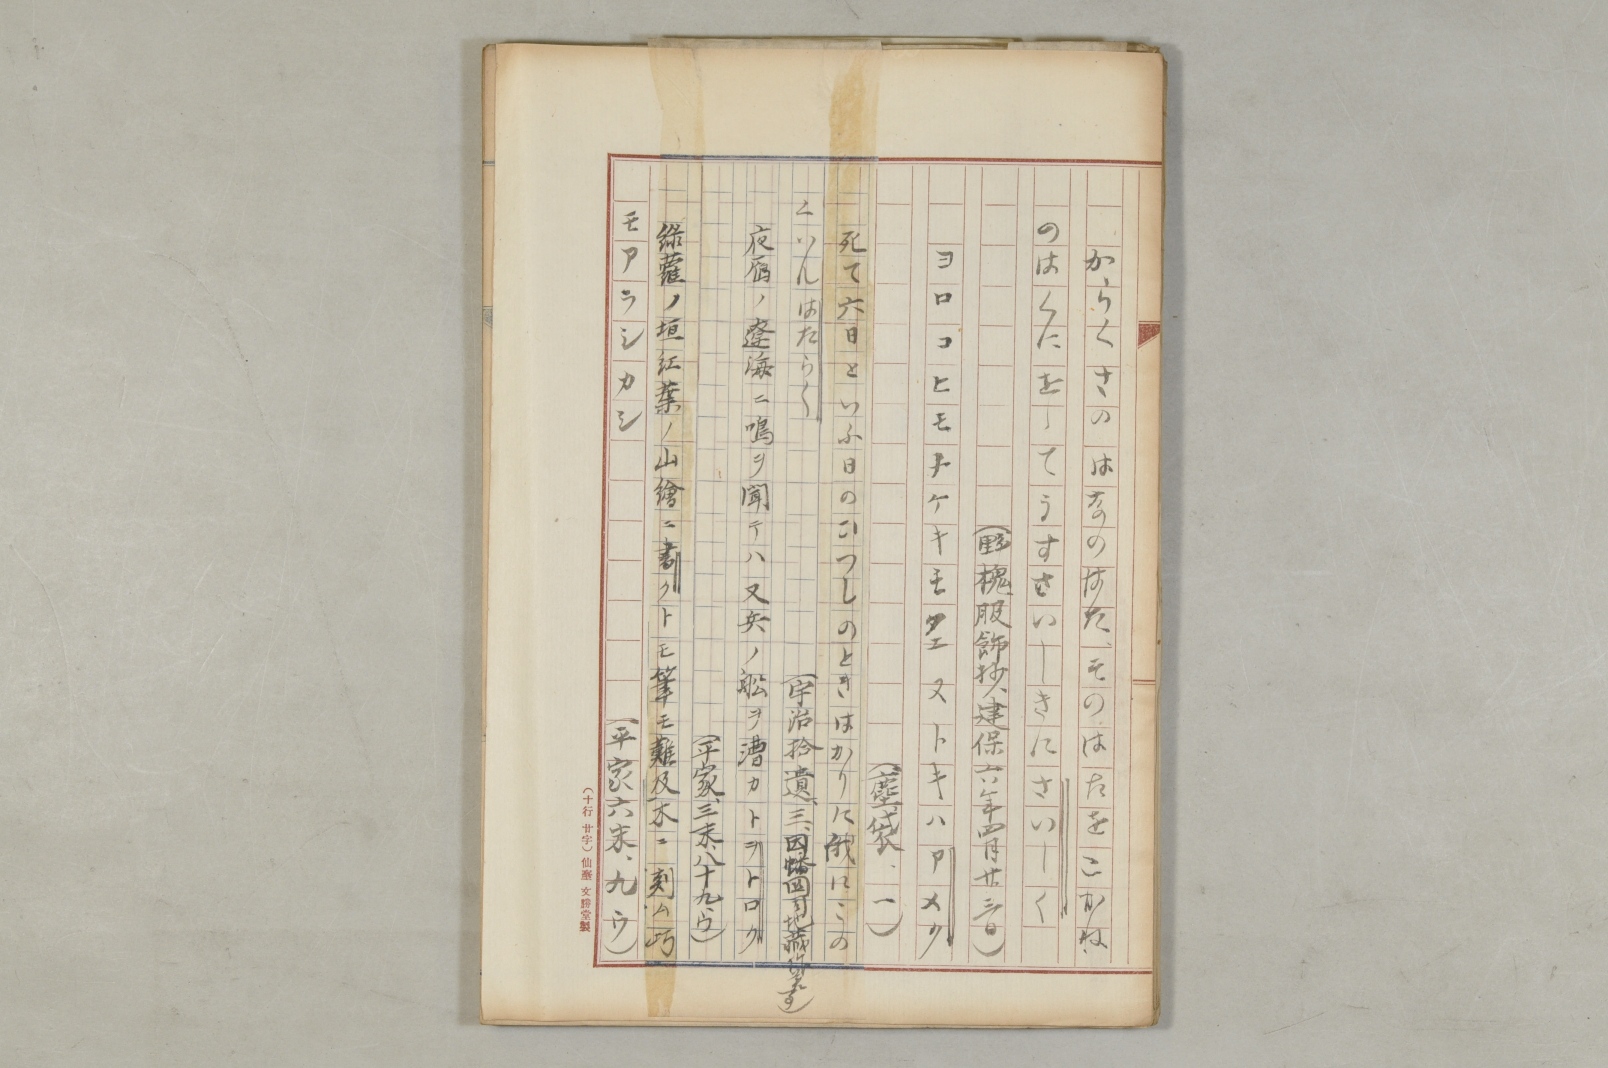 からくさのはなのはた、そのはたをこかね
のはくにをしてうすさいしきにさいしく
(餝槐服飾抄、建保六年四月廿三日)
ヨロコヒモナケキモタエヌトキハアメク
(塵袋、一)
死て六日といふ日のひつしのときはかりに俄にこの
くいんはたらく
(宇治拾遺、三、因幡国司地蔵作差す)
夜鴈ノ遼海ニ鳴ヲ聞テハ又兵ノ舩ヲ漕カトヲトロク
(平家、三末、八十九、ウ)
緑蘿ノ垣紅葉ノ山繪ニ書クトモ筆モ難及木ニ刻ム巧
モアラシカシ
(平家六末、九ウ)
(十行 廿字)仙臺 文勝堂製